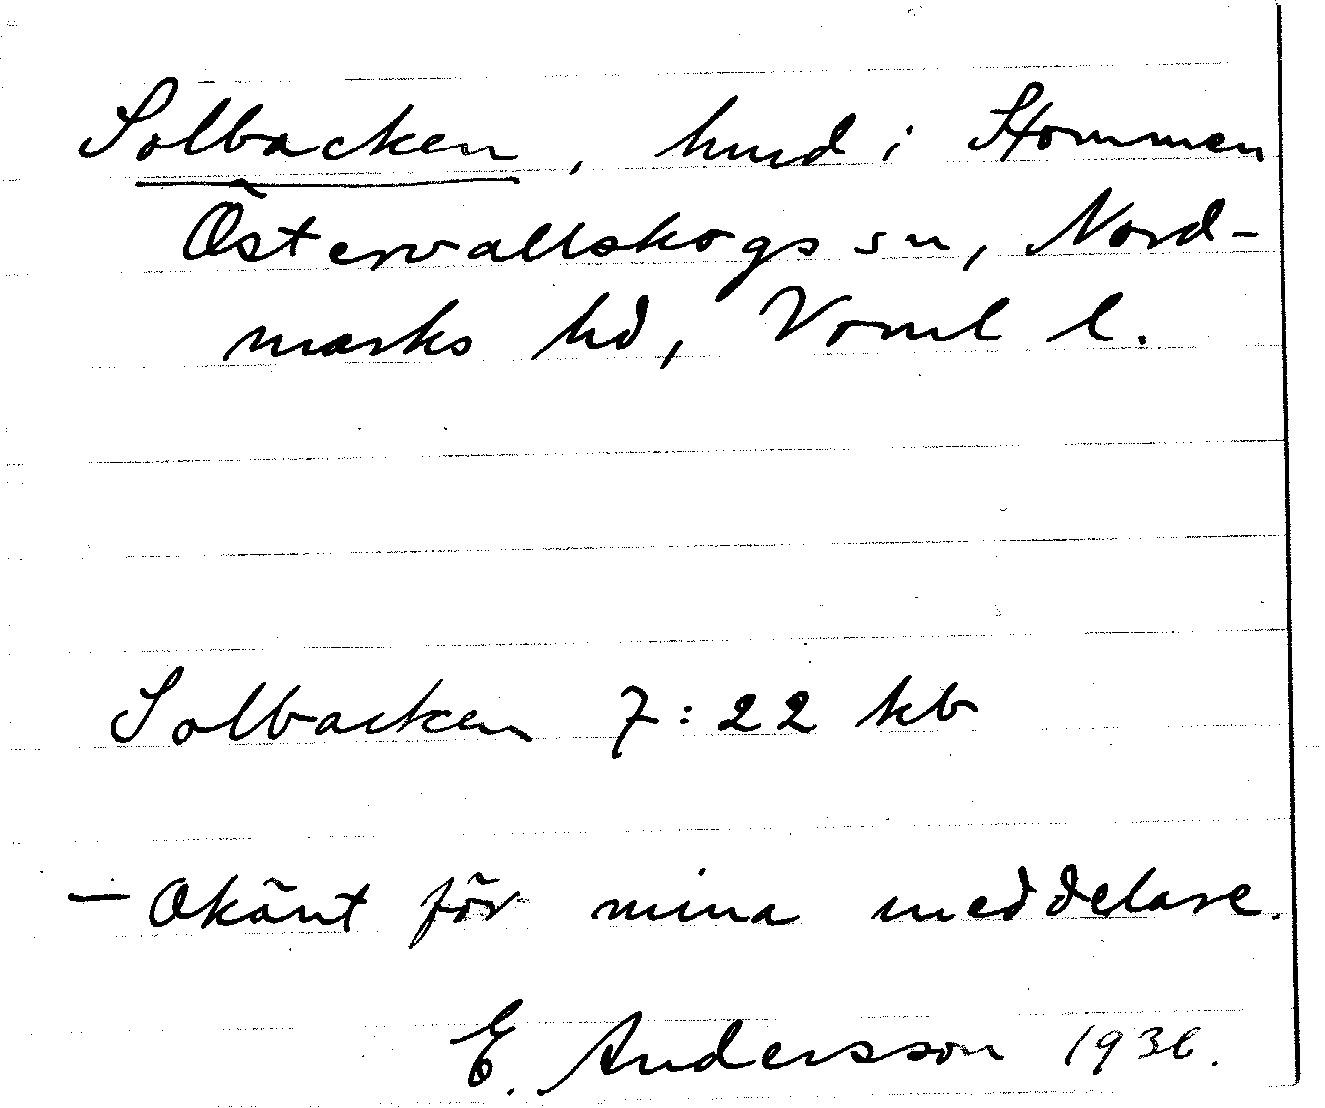 Solbacken, hmd i Stommen
Östervallskogs sn, Nord-
marks hd, Verml l.
Solbacken 7:22 kb
— Okänt för mina meddelare.
E. Andersson 1936.